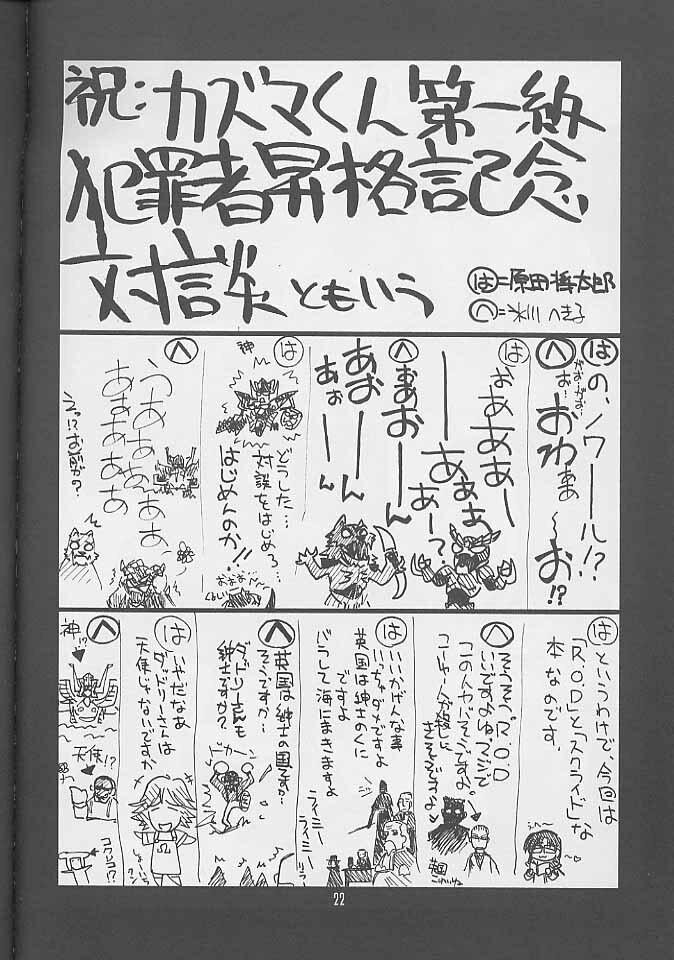 祝:カズマくん第一級
犯罪者昇格記念
対談ともいう
は=原田将太郎
へ=氷川へきる
は
の、ノワール!?
へ
がおーがお
お…おわぁあ〜お!?
は
おあああー
ーあぁぁ
あー?
へ
おぁおーん
あおーん
あぉーん
は
神
どうした…
対談をはじめろ…
はじめんのか!!
おおお…
へ
うあああああ
あぁあああ
えっ!?お前が?
は
というわけで、今回は
「R.O.D」と「スクライド」な
本なのです。
へ
そうそう。「R.O.D」
いいですよねマジで
この人ヤバそうですよ。
は
いいかげんな事
いっちゃダメですよ
英国は紳士のくに
ですよ
バラして海にまきますよ
へ
英国は紳士の国ですか…
そうですか…
ダッドリーさんも
紳士ですか?
ドカーン
は
いやだなあ
ダッドリーさんは
天使じゃないですか
へ
神!?
天使!?
22